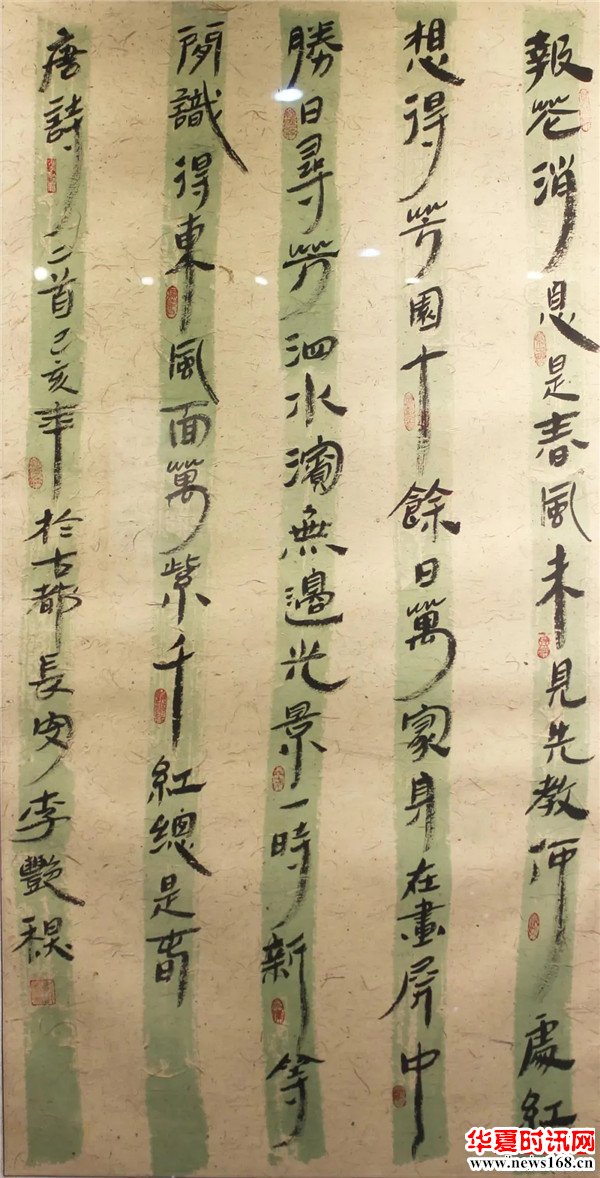 報花消息是春風未見先教何處紅
想得芳園十餘日萬家身在畫屏中
勝日尋芳泗水濱無邊光景一時新等
閒識得東風面萬紫千紅總是春
唐詩二首己亥年於古都長安李艷
华夏时讯网
www.news168.cn